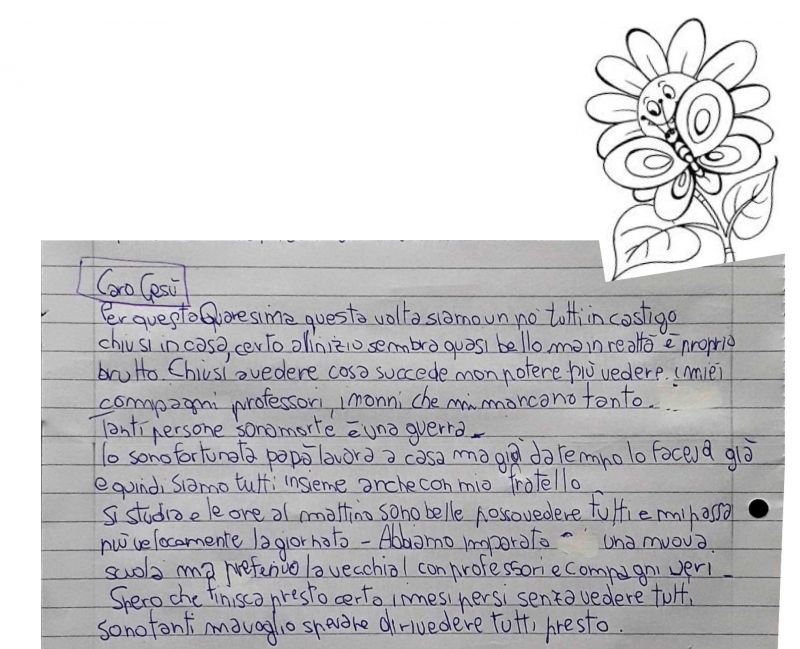 Caro Gesù
Per questa Quaresima questa volta siamo un po' tutti in castigo
chiusi in casa, certo all'inizio sembra quasi bello ma in realtà è proprio
brutto. Chiusi a vedere cosa succede non potere più vedere i miei
compagni professori, i nonni che mi mancano tanto.
Tanti persone sono morte è una guerra -
Io sono fortunata papà lavora a casa ma già da tempo lo faceva già
e quindi siamo tutti insieme anche con mio fratello
Si studia e le ore al mattino sono belle posso vedere tutti e mi passa
più velocemente la giornata - Abbiamo imparato una nuova
scuola ma preferivo la vecchia! con professori e compagni veri -
Spero che finisca presto certo i mesi persi senza vedere tutti
sono tanti ma voglio sperare di rivedere tutti presto.